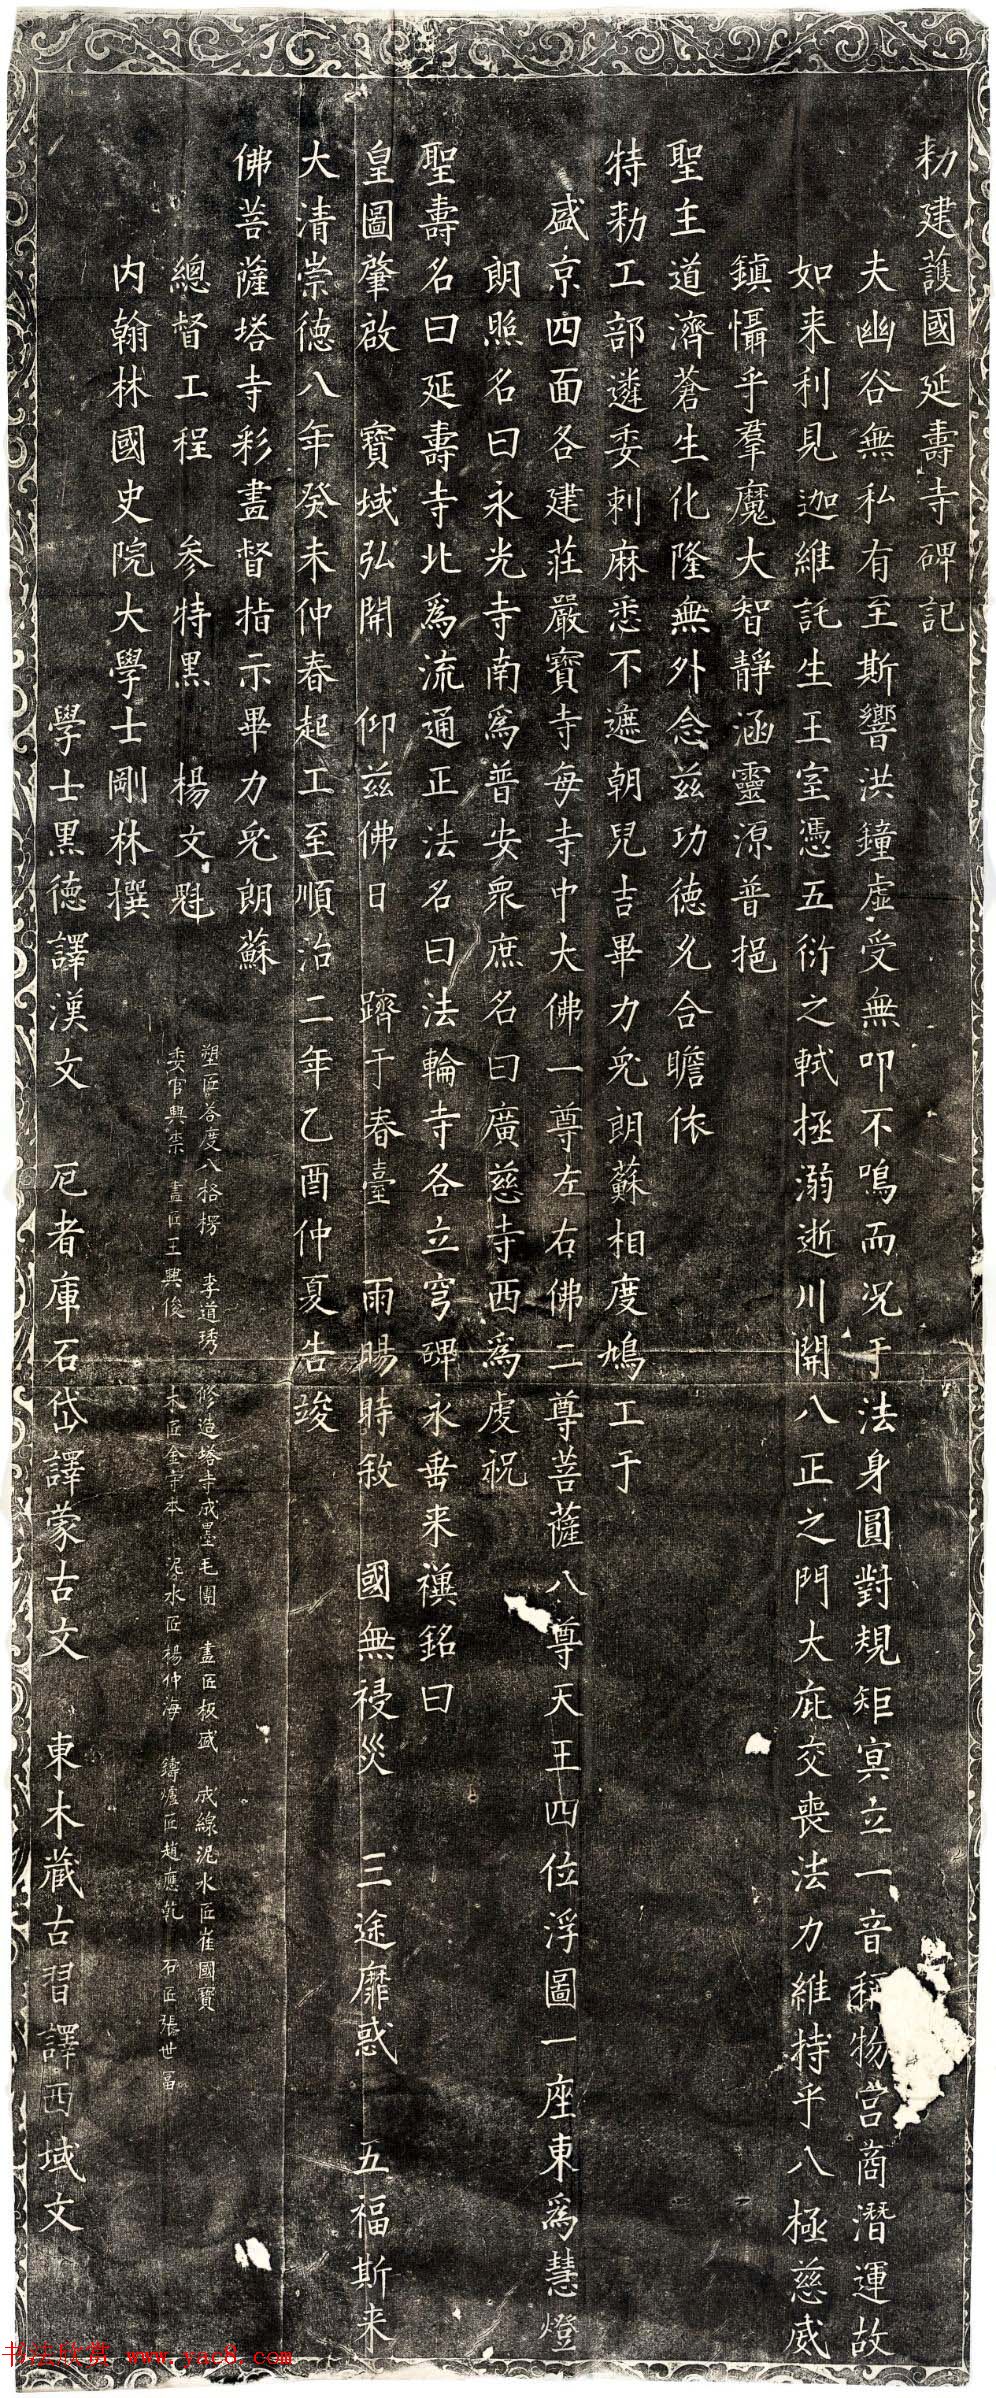 勅建護國延壽寺碑記
夫幽谷無私有至斯響洪鐘虛受無叩不鳴而况于法身圓對規矩冥立一音稱物宮商潛運故
如来利見迦維託生王室憑五衍之軾拯溺逝川開八正之門大庇交喪法力維持乎八極慈威
鎮懾乎羣魔大智靜涵靈源普挹
聖主道濟蒼生化隆無外念兹功德允合瞻依
特勅工部遴委刺麻悉不遮朝兒吉畢力兎朗蘇相度鳩工于
盛京四面各建莊嚴寶寺每寺中大佛一尊左右佛二尊菩薩八尊天王四位浮圖一座東為慧燈
朗照名曰永光寺南爲普安衆庶名曰廣慈寺西爲虔祝
聖壽名曰延壽寺北爲流通正法名曰法輪寺各立穹碑永垂来禩銘曰
皇圖肇啟 寶域弘開 仰兹佛日 躋于春臺 雨暘時敘 國無祲災 三途靡惑 五福斯来
大清崇德八年癸未仲春起工至順治二年乙酉仲夏告竣
佛菩薩塔寺彩畫督指示畢力兎朗蘇
塑匠荅度八格楞 李道琇 修造塔寺成墨毛團 畫匠板盛 成線泥水匠崔國寶
總督工程 参特黑 楊文魁
委官興柰 畫匠王興俊 木匠金守本 泥水匠楊仲海 鑄爐匠趙應乾 石匠張世畐
内翰林國史院大學士剛林撰
學士黑德譯漢文 厄者庫石岱譯蒙古文 東木藏古習譯西域文
书法欣赏 www.yac8.com